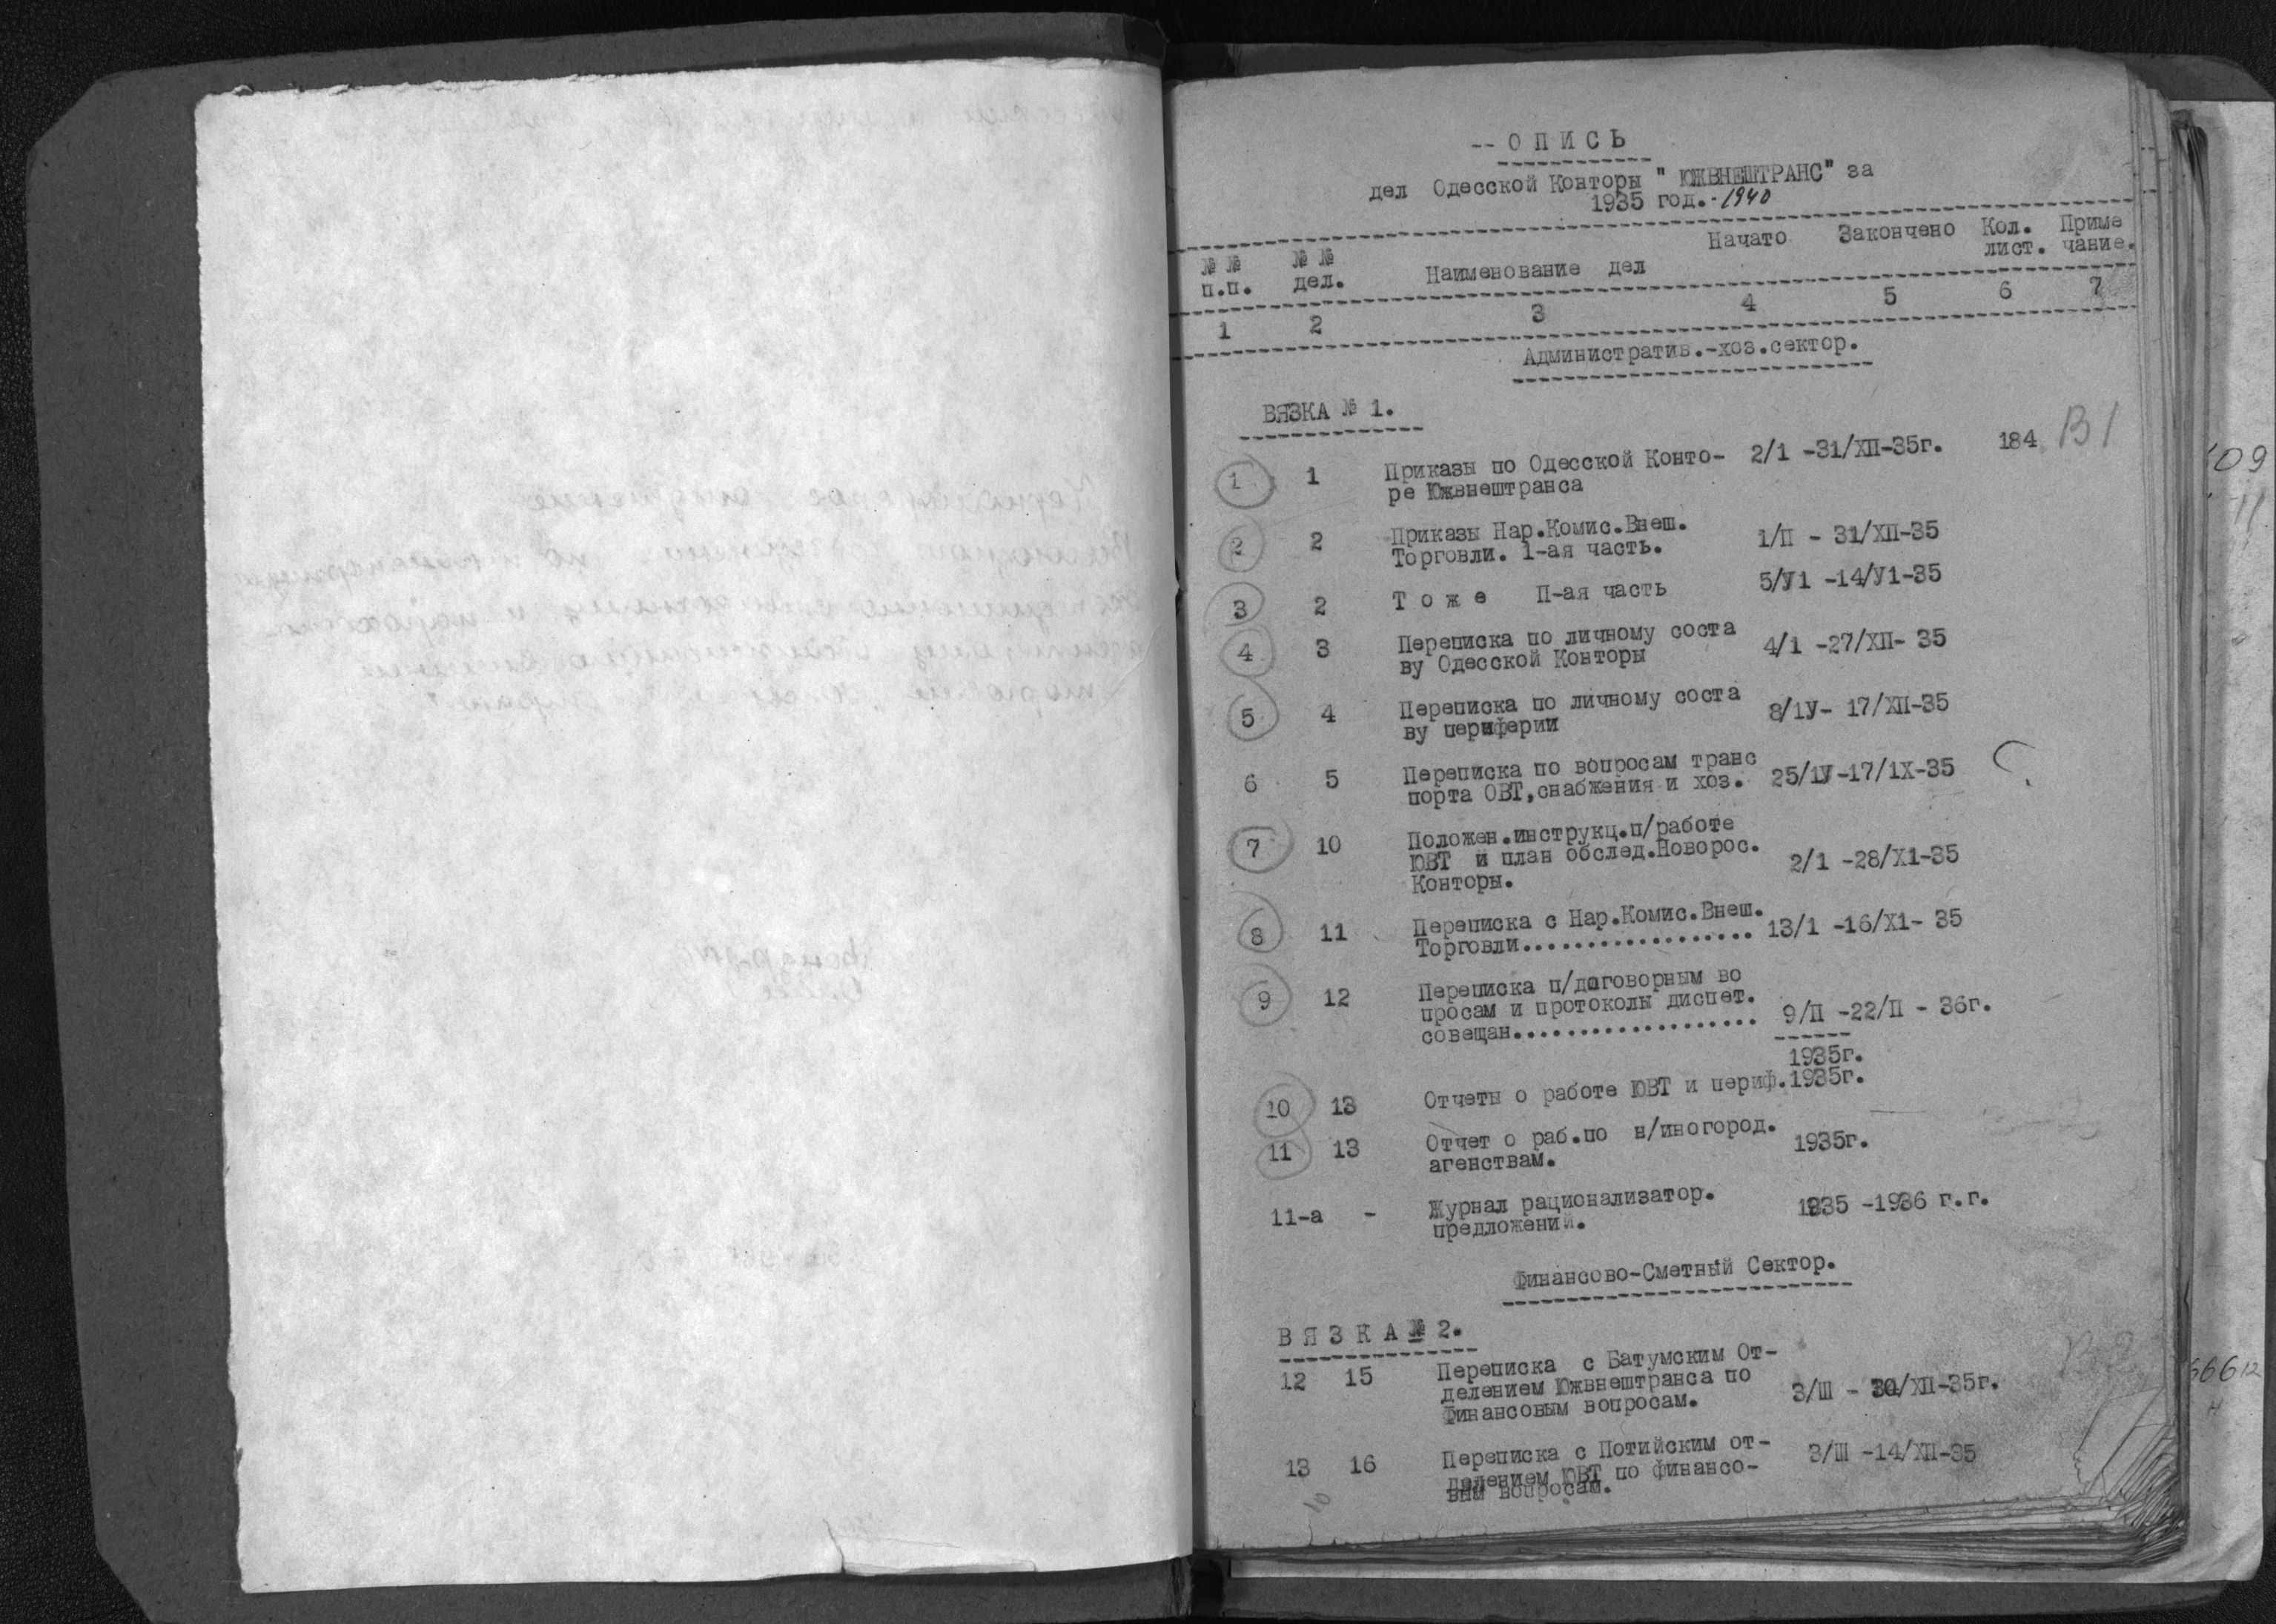 -- О П И С Ь
дел Одесской Конторы " ЮЖВНЕШТРАНС" за
1935 год.-1940
№ № п.п. № № дел. Наименование дел Начато Закончено Кол. лист. Приме чание.
1 2 3 4 5 6 7
Административ.-хоз.сектор.
ВЯЗКА № 1.
1 1 Приказы по Одесской Конто- 2/1 -31/ХП-35г. 184 В1
ре Южвнештранса
2 2 Приказы Нар.Комис.Внеш.
Торговли. 1-ая часть. 1/П - 31/ХП-35
3 2 Т о ж е П-ая часть 5/У1 -14/У1-35
4 3 Переписка по личному соста
ву Одесской Конторы 4/1 -27/ХП- 35
5 4 Переписка по личному соста
ву периферии 8/1У- 17/ХП-35
6 5 Переписка по вопросам транс
порта ОВТ,снабжения и хоз. 25/1У-17/1Х-35
7 10 Положен.инструкц.п/работе
ЮВТ и план обслед.Новорос. 2/1 -28/Х1-35
Конторы.
8 11 Переписка с Нар.Комис.Внеш.
Торговли.................. 13/1 -16/Х1- 35
9 12 Переписка п/договорным во
просам и протоколы диспет.
совещан................... 9/П -22/П - 36г.
1935г.
10 13 Отчеты о работе ЮВТ и периф.1935г.
11 13 Отчет о раб.по н/иногород. 1935г.
агенствам.
11-а - Журнал рационализатор. 1935 -1936 г.г.
предложений.
Финансово-Сметный Сектор.
В Я З К А № 2.
12 15 Переписка с Батумским От-
делением Южвнештранса по
Финансовым вопросам. 3/Ш - 30/ХП-35г.
13 16 Переписка с Потийским от- 3/Ш -14/ХП-35
делением ЮВТ по финансо-
вым вопросам.
В 2
10